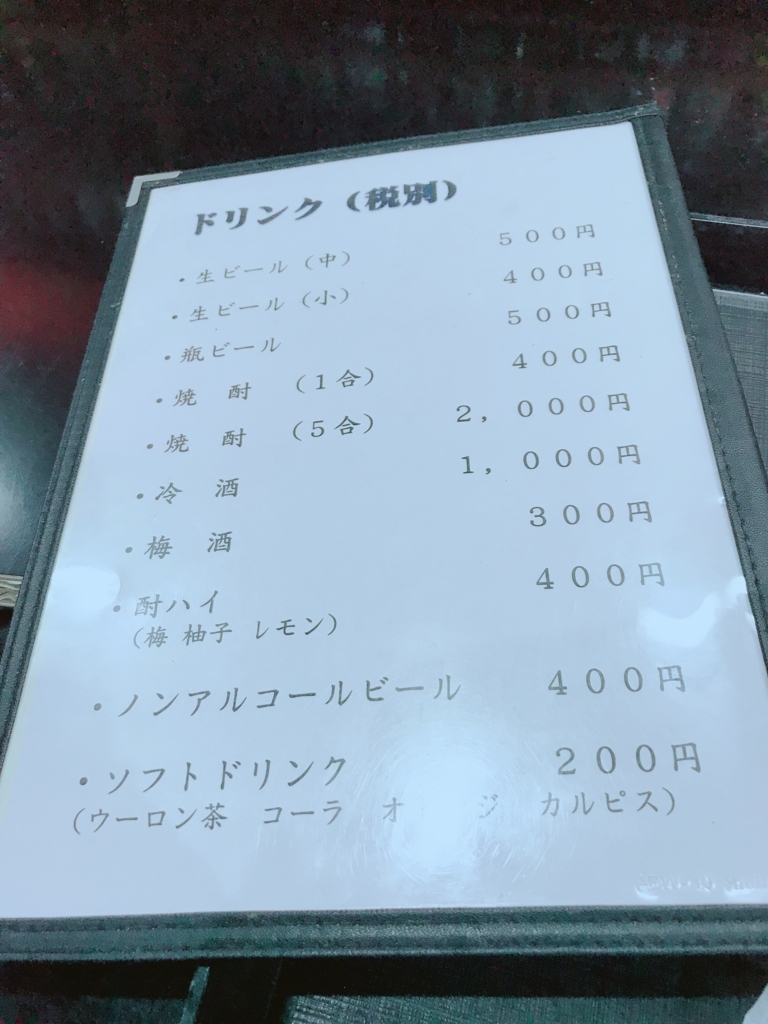 ドリンク（税別）
・生ビール（中） 500円
・生ビール（小） 400円
・瓶ビール 500円
・焼　酎　（1合） 400円
・焼　酎　（5合） 2，000円
・冷　酒 1，000円
・梅　酒 300円
・酎ハイ 400円
（梅 柚子 レモン）
・ノンアルコールビール 400円
・ソフトドリンク 200円
（ウーロン茶　コーラ　カルピス）